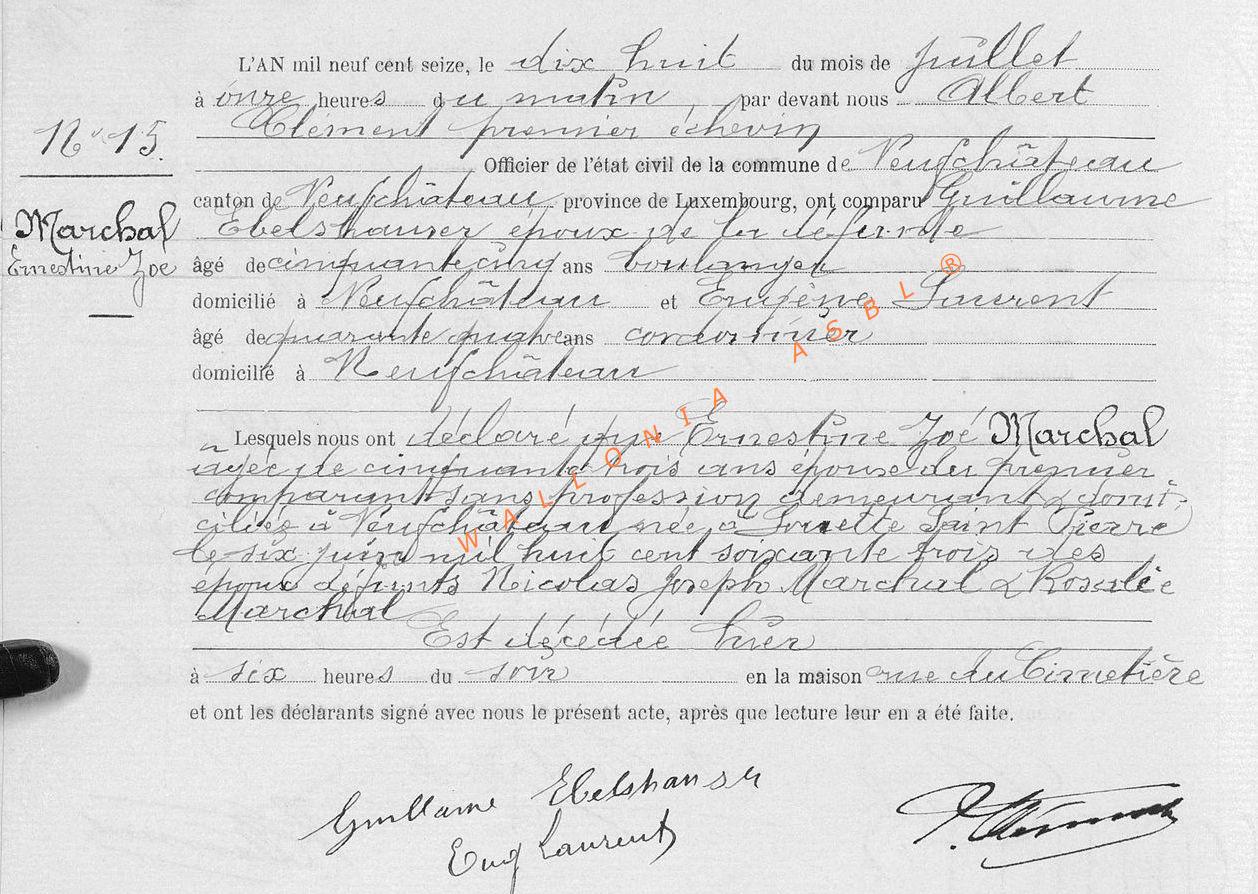 L'AN mil neuf cent seize, le dix huit du mois de juillet
à onze heures du matin, par devant nous Albert
Clément premier échevin
N° 15.
Officier de l'état civil de la commune de Neufchâteau
canton de Neufchâteau province de Luxembourg, ont comparu Guillaume
Marchal
Ernestine Zoé
Ebelshauser époux de la défunte
âgé de cinquante cinq ans boulanger
domicilié à Neufchâteau et Eugène Laurent
âgé de quarante quatre ans cordonnier
domicilié à Neufchâteau
Lesquels nous ont déclaré que Ernestine Zoé Marchal
agée de cinquante trois ans épouse du premier
comparant sans profession demeurant & domi-
ciliée à Neufchâteau née à Saint Pierre
le six juin mil huit cent soixante trois des
époux défunts Nicolas Joseph Marchal & Rosalie
Marchal
Est décédée hier
à six heures du soir en la maison rue du Cimetière
et ont les déclarants signé avec nous le présent acte, après que lecture leur en a été faite.
Guillaume Ebelshauser
Eug Laurent
WALLONIA ASBL ®